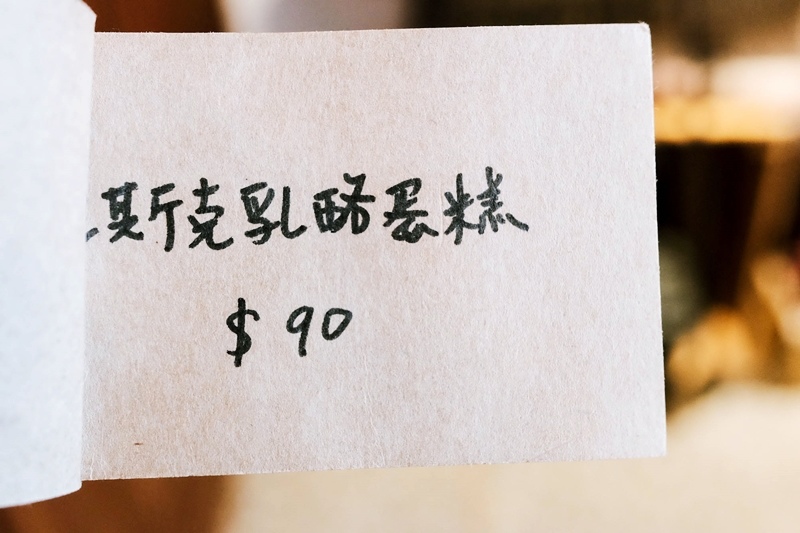 斯克乳酪蛋糕
$90